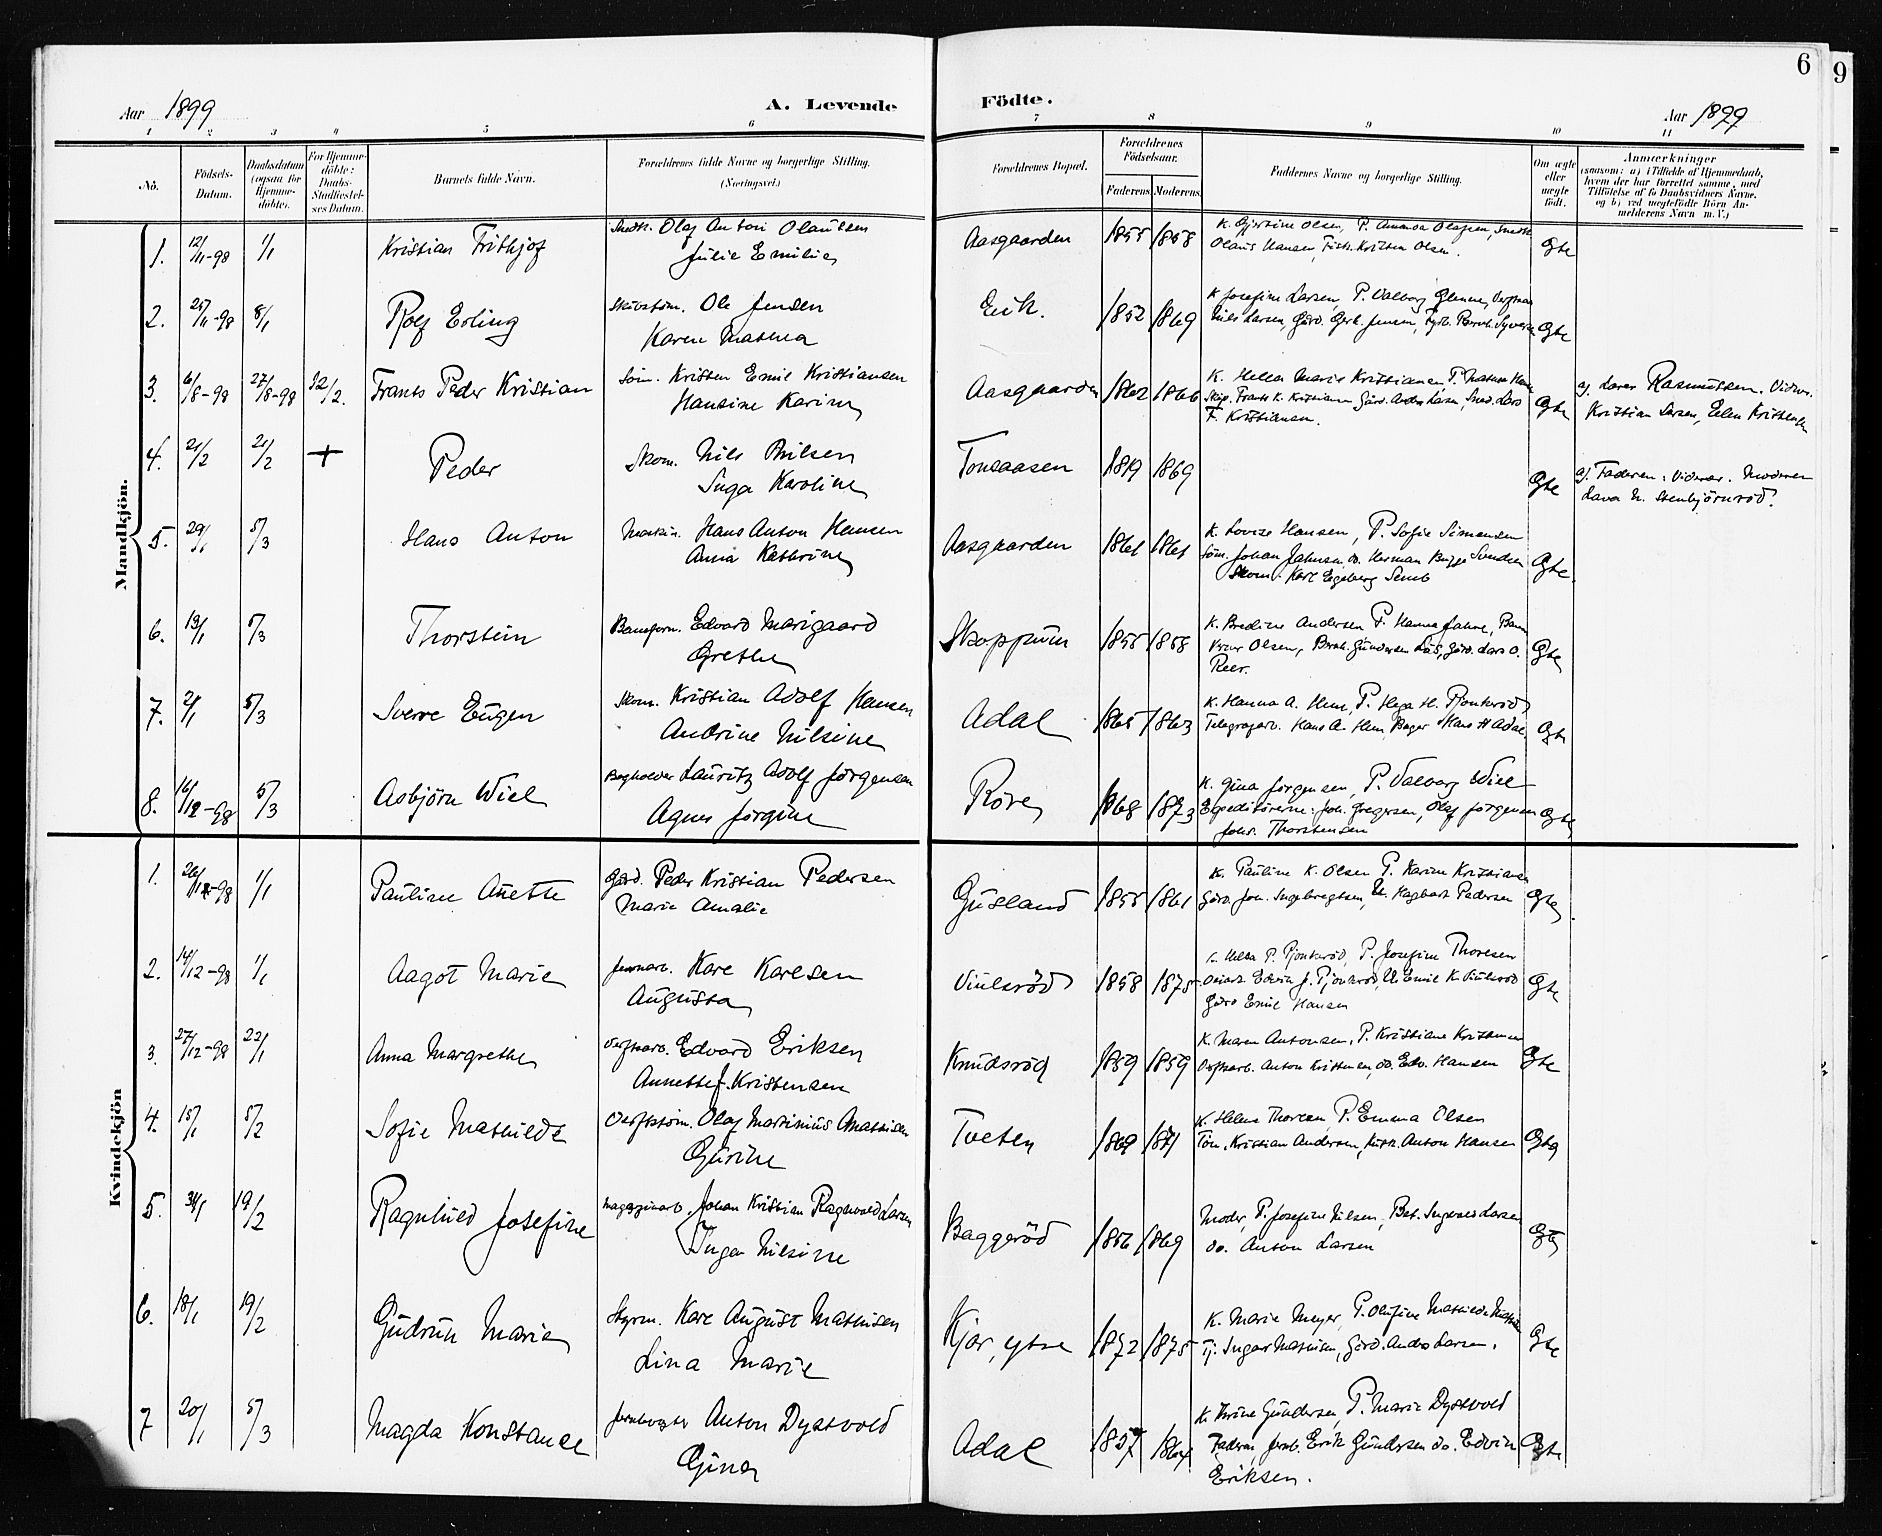 6
9
Aar 1899
A. Levende
Födte.
Aar 1899
1 2 3 4 5 6 7 8 9 10 11
No.
Födsels-Datum.
Daabsdatum (ogsaa for Hjemme-döbte).
For Hjemme-döbte: Daabs-Stadfæstel-ses Datum.
Barnets fulde Navn.
Forældrenes fulde Navne og borgerlige Stilling.
(Næringsvei.)
Forældrenes Bopæl.
Forældrenes Födselsaar.
Faderens Moderens
Faddernes Navne og borgerlige Stilling.
Om ægte eller uægte födt.
Anmærkninger
(saasom: a) i Tilfælde af Hjemmedaab, hvem der har forrettet samme, med Tilföielse af to Daabsvidners Navne, og b) ved uægtefödte Börn An-melderens Navn m. V.)
Mandkjön.
1. 12/11-98 1/1 Kristian Frithjof
Snedk. Olaf Anton Olaussen
Julie Emilie
Aasgaarden 1855 1858
K. Gjertine Olsen, P. Amanda Olafsen, Snedk
Olaus Hansen, Fisk. Kristen Olsen.
Gte
2. 25/11-98 8/1 Rolf Erling
Skibstöm. Ole Jensen
Karen Mathea
Eik. 1852 1869
K Josefine Larsen, P. Valborg
Nils Larsen, Gård. Gerh. Jensen,
Gte
3. 6/8-98 27/8-98 12/2. Frants Peder Kristian
Söm. Kristen Emil Kristiansen
Hansine Karine
Aasgaarden 1862 1866
K. Helea Marie Kristiansen, P.
Skip. Frants K. Kristiansen Gård. Anders Larsen, Sned. Lars
F. Kristiansen.
Gte
a). Lærer Rasmussen. Vidner.
Kristian Larsen, Ellen Kristensen
4. 21/2 21/2 + Peder
Skom. Nils Nilsen
Inga Karoline
Tonsaasen 1819 1869
Gte
a). Faderen: Vidner. Moderen
Lava N. Stenbjörnröd.
5. 29/1 5/3 Hans Anton
Maskin. Hans Anton Hansen
Anna Kathrine
Aasgaarden 1861 1861
K. Lovise Hansen, P. Sofie Simensen
Söm. Johan Jahnsen do. Herman Bugge Svendsen
Skom. Karl Egeberg Semb
Gte.
6. 13/1 5/3 Thorstein
Baneform. Edvard Marigaard
Grethe
Skoppum 1855 1858
K. Bredine Andersen P. Hanna Jahre, Bane
Olsen, Bernh. Gundersen Lås, Gård. Lars O.
Reer.
Gte
7. 2/1 5/3 Sverre Eugen
Skom. Kristian Adolf Hansen
Andrine Nilsine
Adal 1865 1863
K. Hanna A. Hem, P. Helga H. Pjonkeröd
Telegrafarb. Hans A. Hem, Bager Hans H Adal
Gte
8. 16/12-98 5/3 Asbjörn Wiel
Bogholder Lauritz Adolf Jörgensen
Agnes Jörgine
Röre 1868 1873
K. Gina Jörgensen, P. Valborg Wiel
Expeditörerne: Joh. Gregersen, Olaf Jörgensen
Johs. Thorstensen
Gte
Kvindekjön
1. 26/12-98 1/1 Pauline Anette
Gård. Peder Kristian Pedersen
Marie Amalie
Gusland 1855 1861
K. Pauline K. Olsen P. Karine Kristiansen
Gård. Joh. Ingebregtsen, U. Hagbart Pedersen
Gte
2. 14/12-98 1/1 Aagot Marie
Jernarb. Karl Karlsen
Augusta
Viulsröd 1858 1875
K. Helea P. Pjonkeröd, P. Josefine Thoresen
Edvin J. Pjonkeröd, U. Emil K. Viulsröd
Gård Emil Hansen
Gte
3. 27/12-98 22/1 Anna Margrethe
Verftsarb. Edvard Eriksen
Annette J. Kristensen
Knudsröd 1859 1859
K. Maren Antonsen, P. Kristiane Kristensen
Verftsarb. Anton Kristensen, do. Edv. Hansen
Gte
4. 15/1 5/2 Sofie Mathilde
Verftstöm. Olaf Martinius Mathisen
Gurine
Tveten 1869 1871
K. Helene Thoresen, P. Emma Olsen
Töm. Kristian Andersen, Anton Hansen
Gte
5. 31/1 19/2 Ragnhild Josefine
Magazinarb. Johan Kristian Ragnvald Larsen
Inga Nilsine
Baggeröd 1856 1869
Moder, P. Josefine Nilsen, Bet. Ingvald Larsen
do. Anton Larsen
Gte
6. 18/1 19/2 Gudrun Marie
Styrm. Karl August Mathisen
Lina Marie
Kjær, ytre 1872 1875
K. Marie Meyer, P. Olufine Mathilde Mathisen
Tj. Ingar Mathisen, Gård. Anders Larsen.
Gte
7 20/1 5/3 Magda Konstance
Jernbvogter Anton Dystvold
Gina
Adal 1857 1864
K. Trine Gundersen, P. Marie Dystvold
Faderen, Jernb. Erik Gundersen do. Edvin
Eriksen.
Gte